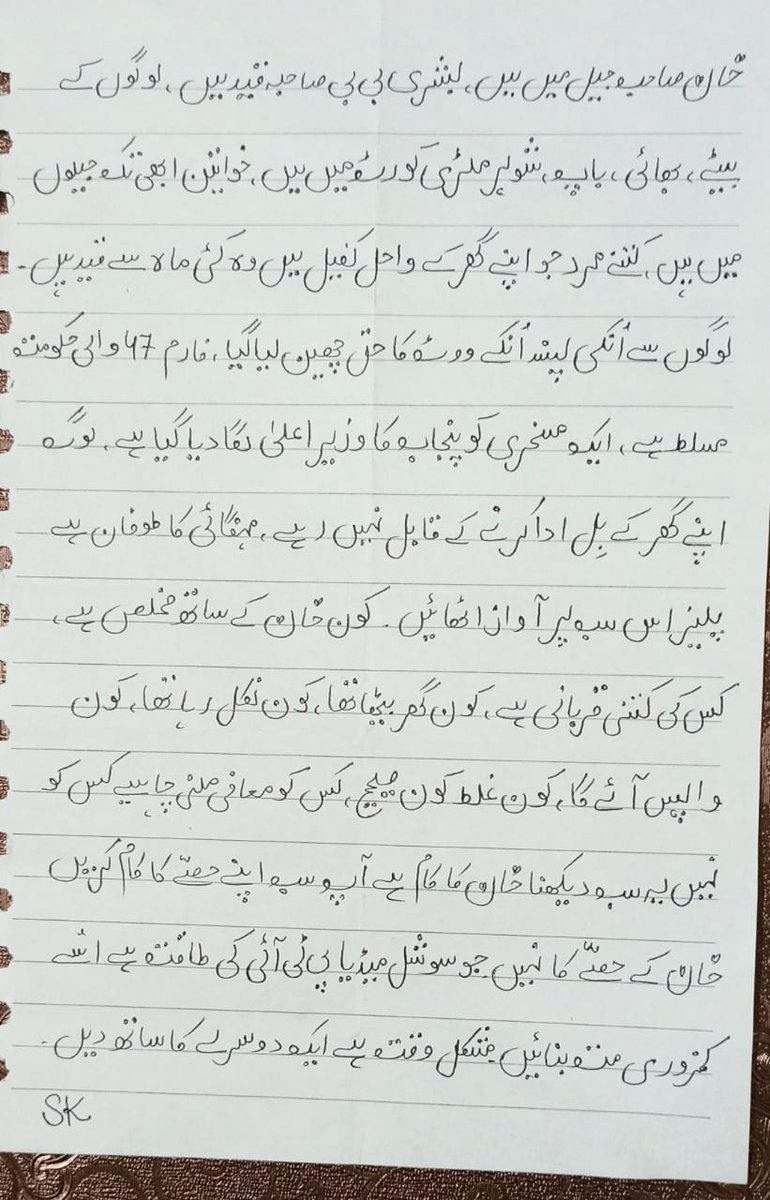 خان صاحب جیل میں ہیں، بشری بی بی صاحبہ قید ہیں، لوگوں کے
بیٹے، بھائی، باپ، شوہر ملڑی کورٹ میں ہیں، خواتین ابھی تک جیلوں
میں ہیں، کتنے مرد جو اپنے گھر کے واحل کفیل ہیں وہ کئی ماہ سے قید ہیں۔
لوگوں سے اُنکی پسند اُنکے ووٹ کا حق چھین لیا گیا، فارم 47 والی حکومت
مسلط ہے، ایک مسخری کو پنجاب کا وزیر اعلیٰ لگا دیا گیا ہے، لوگ
اپنے گھر کے بِل ادا کرنے کے قابل نہیں رہے، مہنگائی کا طوفان ہے
پلیز اس سب پر آواز اٹھائیں۔ کون خان کے ساتھ مخلص ہے،
کس کی کتنی قربانی ہے، کون گھر بیٹھا تھا، کون نکل رہا تھا، کون
واپس آئے گا، کون غلط کون صحیح، کس کو معافی ملنی چاہیے کس کو
نہیں یہ سب دیکھنا خان کا کام ہے آپ سب اپنے حصّے کا کام کریں
خان کے حصّے کا نہیں جو سوشل میڈیا پی ٹی آئی کی طاقت ہے اسے
کمزوری مت بنائیں مشکل وقت ہے ایک دوسرے کا ساتھ دیں۔
SK